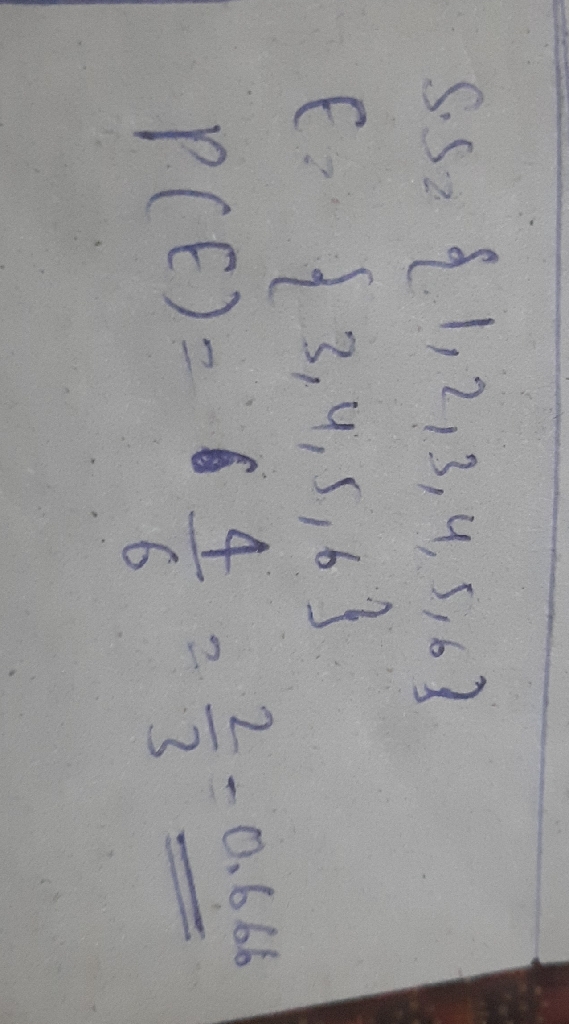 S.S = {1, 2, 3, 4, 5, 6}
E = {3, 4, 5, 6}
P(E) = 4/6 = 2/3 = 0.666